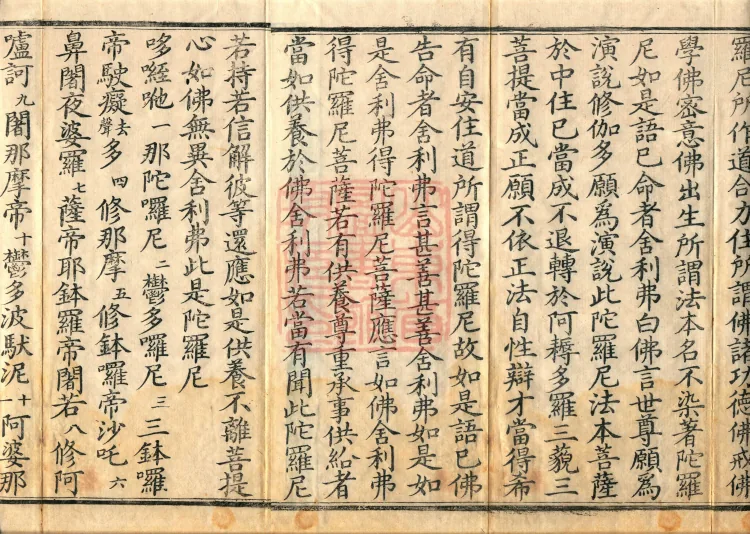 羅尼所作道合力住所謂佛諸功德佛戒佛
學佛密意佛出生所謂法本名不染著陀羅
尼如是語已命者舍利弗白佛言世尊願爲
演說修伽多願爲演說此陀羅尼法本菩薩
於中住已當成不退轉於阿耨多羅三藐三
菩提當成正願不依正法自性辯才當得希
有自安住道所謂得陀羅尼故如是語已佛
告命者舍利弗言甚善甚善舍利弗如是如
是舍利弗得陀羅尼菩薩應言如佛舍利弗
得陀羅尼菩薩若有供養尊重承事供給者
當如供養於佛舍利弗若當有聞此陀羅尼
若持若信解彼等還應如是供養不離菩提
心如佛無異舍利弗此是陀羅尼
哆經咃一那陀囉尼二鬱多囉尼三三鉢囉
帝駛癡去聲多四修那摩五修鉢囉帝沙吒六
鼻闍夜婆羅七薩帝耶鉢羅帝闍若八修阿
嚧訶九闍那摩帝十鬱多波馱泥十一阿婆那